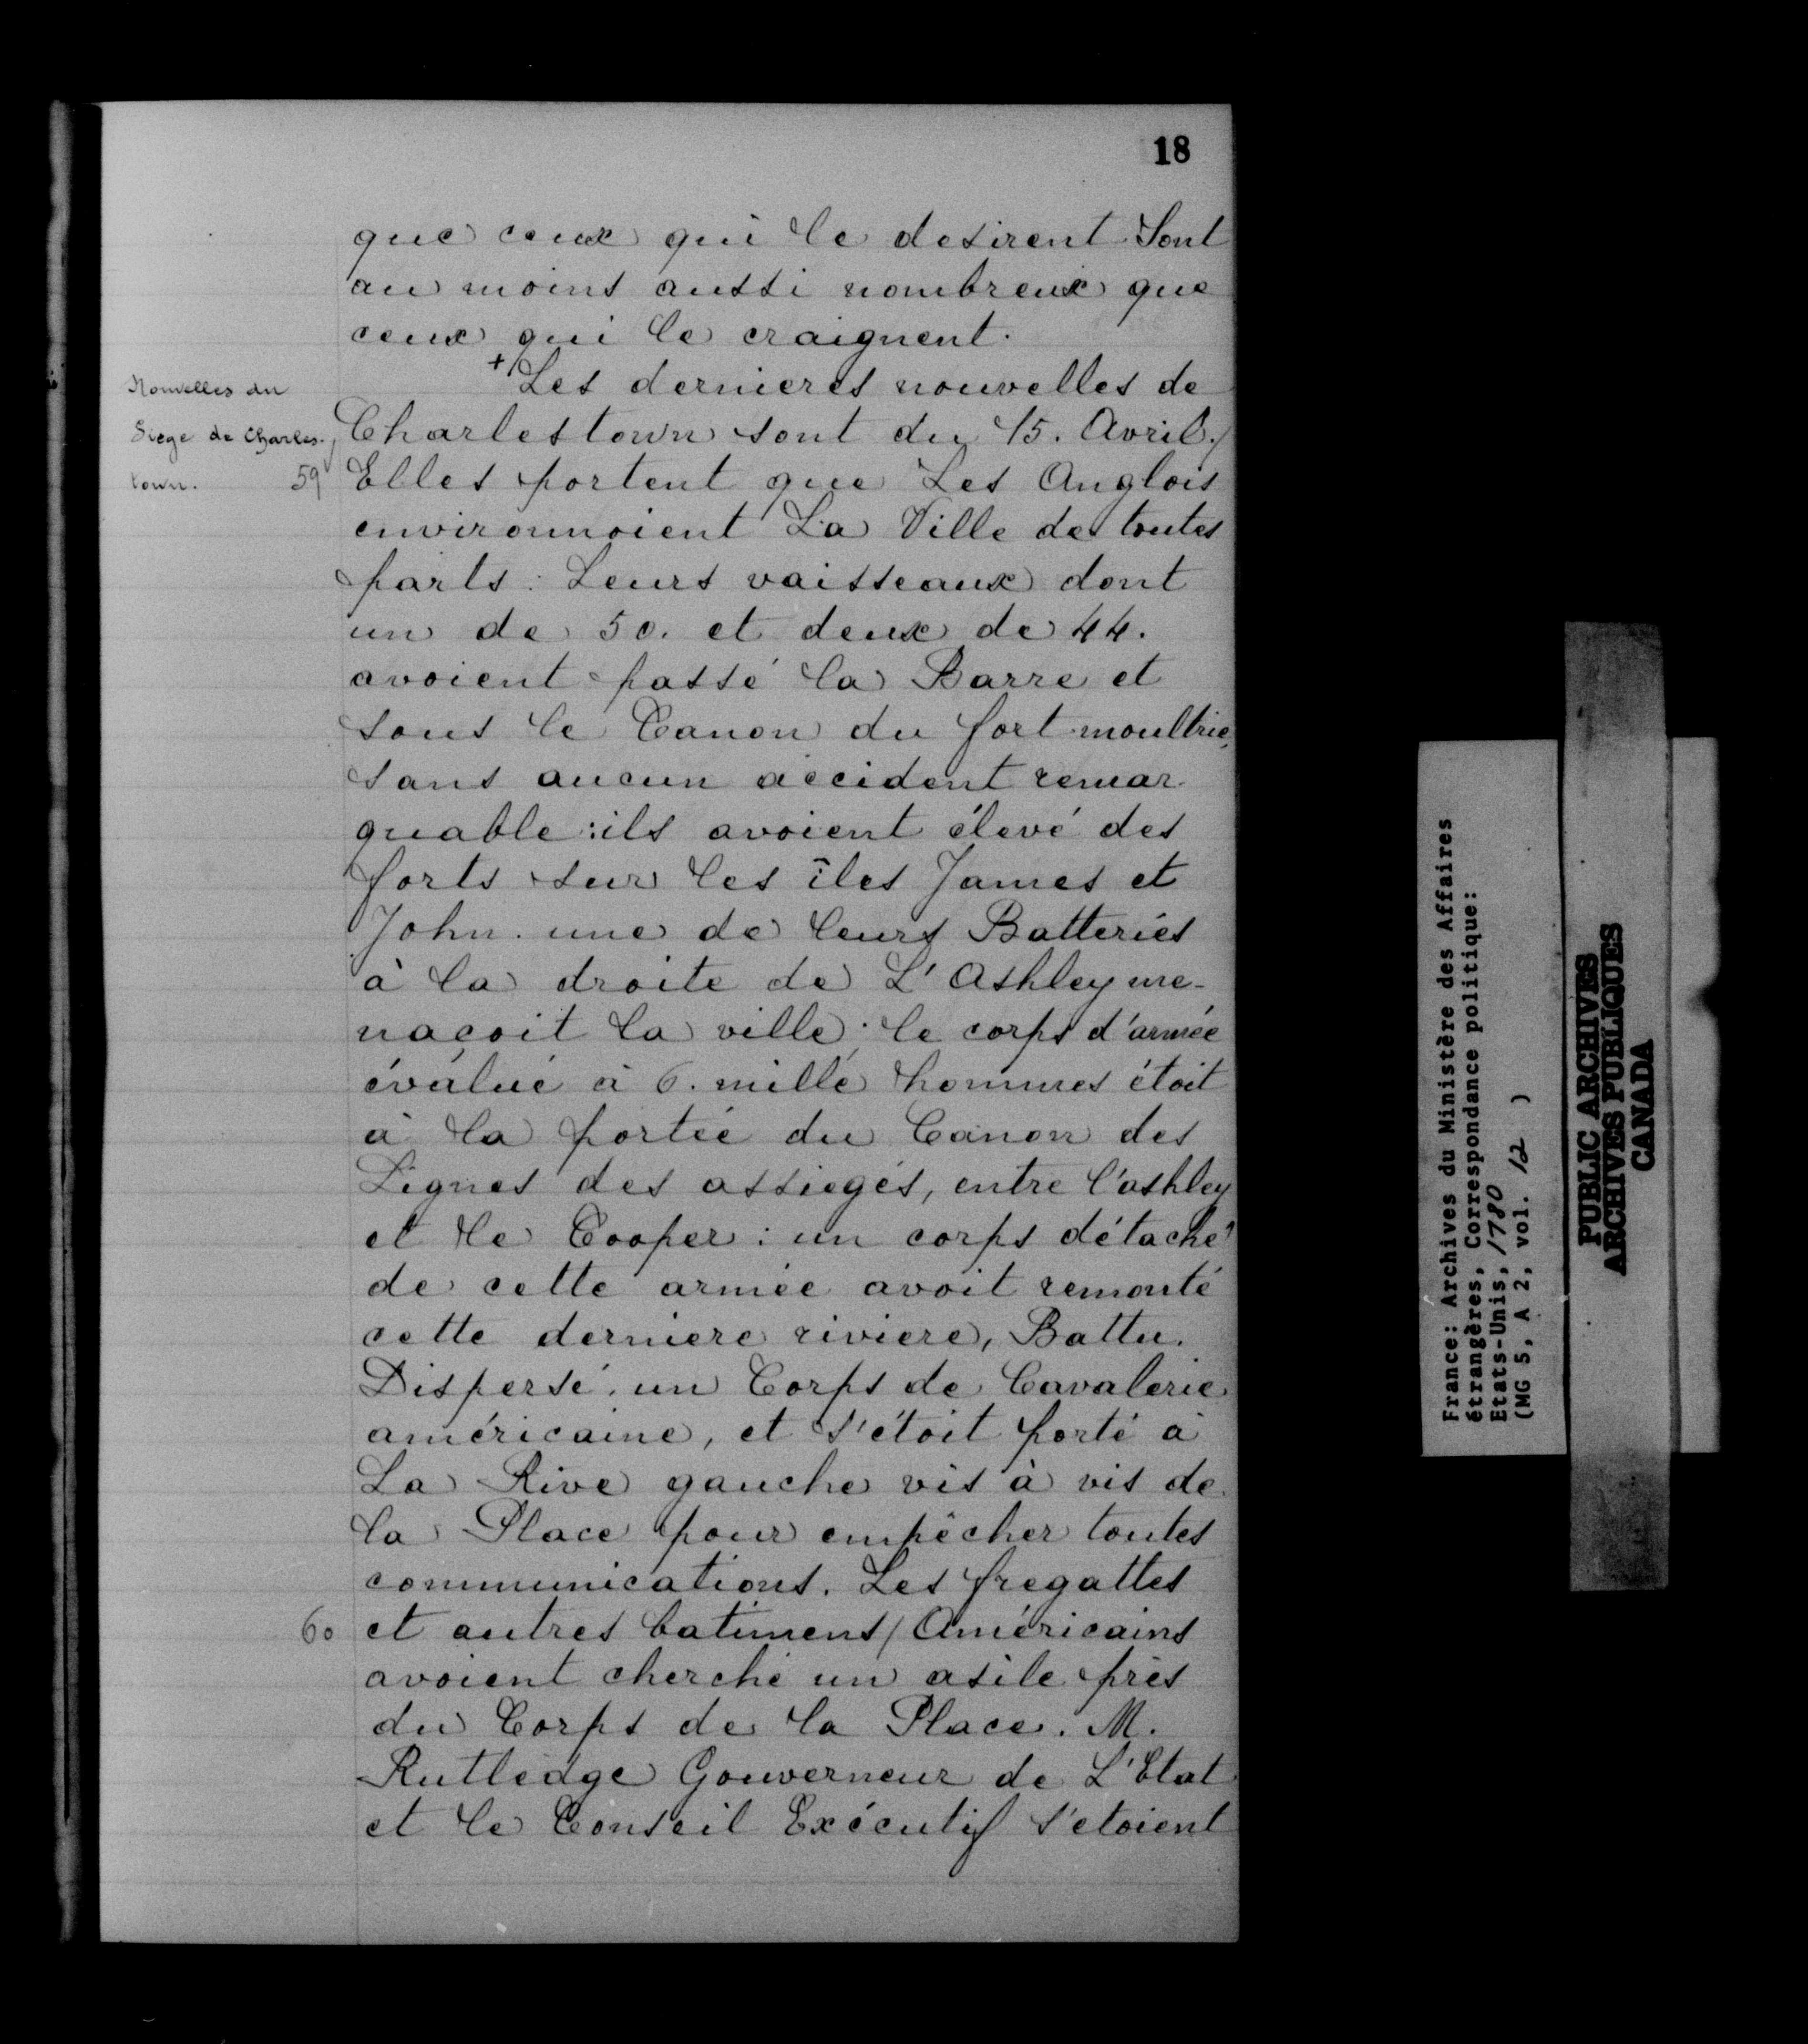 18
que ceux qui le desirent Sont
au moins aussi nombreux que
ceux qui le craignent.
+ Les dernieres nouvelles de
Nouvelles du
Siege de Charles-
town.
Charlestown sont du 15. Avril./
59 Elles portent que Les Anglois
environnoient La Ville de toutes
parts : Leurs vaisseaux dont
un de 50. et deux de 44.
avoient passé la Barre et
sous le Canon du fort moultrie,
sans aucun accident remar-
quable : ils avoient élevé des
forts sur les îles James et
John. une de leurs Batteries
à la droite de L'Ashley me-
naçoit la ville ; le corps d'armée
évalué à 6. mille hommes étoit
à la portée du Canon des
Lignes des assiegés, entre l'ashley
et le Cooper : un corps détaché
de cette armée avoit remonté
cette derniere riviere, Battu.
Dispersé. un Corps de Cavalerie
américaine, et s'étoit porté à
La Rive gauche vis à vis de
la Place pour empêcher toutes
communications. Les fregattes
60 et autres batimens / Américains
avoient cherché un asile près
du Corps de la Place. M.
Rutledge Gouverneur de L'Etat
et le Conseil Exécutif s'etoient
France: Archives du Ministère des Affaires
étrangères, Correspondance politique:
Etats-Unis, 1780
(MG 5, A 2, vol. 12 )
PUBLIC ARCHIVES
ARCHIVES PUBLIQUES
CANADA